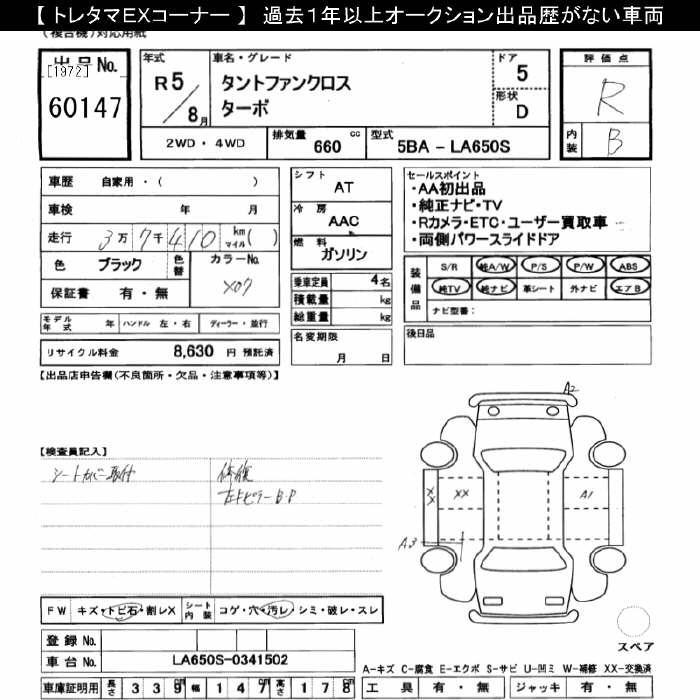 【 トレタマEXコーナー 】 過去1年以上オークション出品歴がない車両
(複合機)対応用紙
出品No.
[1972]
60147
年式
R5/8月
車名・グレード
タントファンクロス
ターボ
ドア
5
形状
D
評価点
R
内装 B
2WD・4WD
排気量 660 cc
型式 5BA - LA650S
車歴 自家用・( )
車検 年 月
走行 3万7千410 km マイル( )
色 ブラック 色替 カラーNo.
X07
保証書 有・無
シフト AT
冷房 AAC
燃料 ガソリン
乗車定員 4名
積載量 kg
総重量 kg
セールスポイント
・AA初出品
・純正ナビ・TV
・Rカメラ・ETC・ユーザー買取車
・両側パワースライドドア
装備品
S/R 純A/W P/S P/W ABS
純TV 純ナビ 革シート 外ナビ エアB
ナビ型番:
モデル年式 年 ハンドル 左・右 ディーラー・並行
リサイクル料金 8,630 円 預託済
名変期限
月 日
後日品
【出品店申告欄(不良箇所・欠品・注意事項等)】
【検査員記入】
シートカバー取付
修復
左Bピラー B・P
A2
XX
XX
A1
A3
FW キズ・トビ石・割レX シート内装 コゲ・穴・汚レ・シミ・破レ・スレ
登録No.
車台No. LA650S-0341502
車庫証明用 長さ 339cm 幅 147cm 高さ 178cm
スペア
A-キズ C-腐食 E-エクボ S-サビ U-凹ミ W-補修 XX-交換済
工具 有・無 ジャッキ 有・無